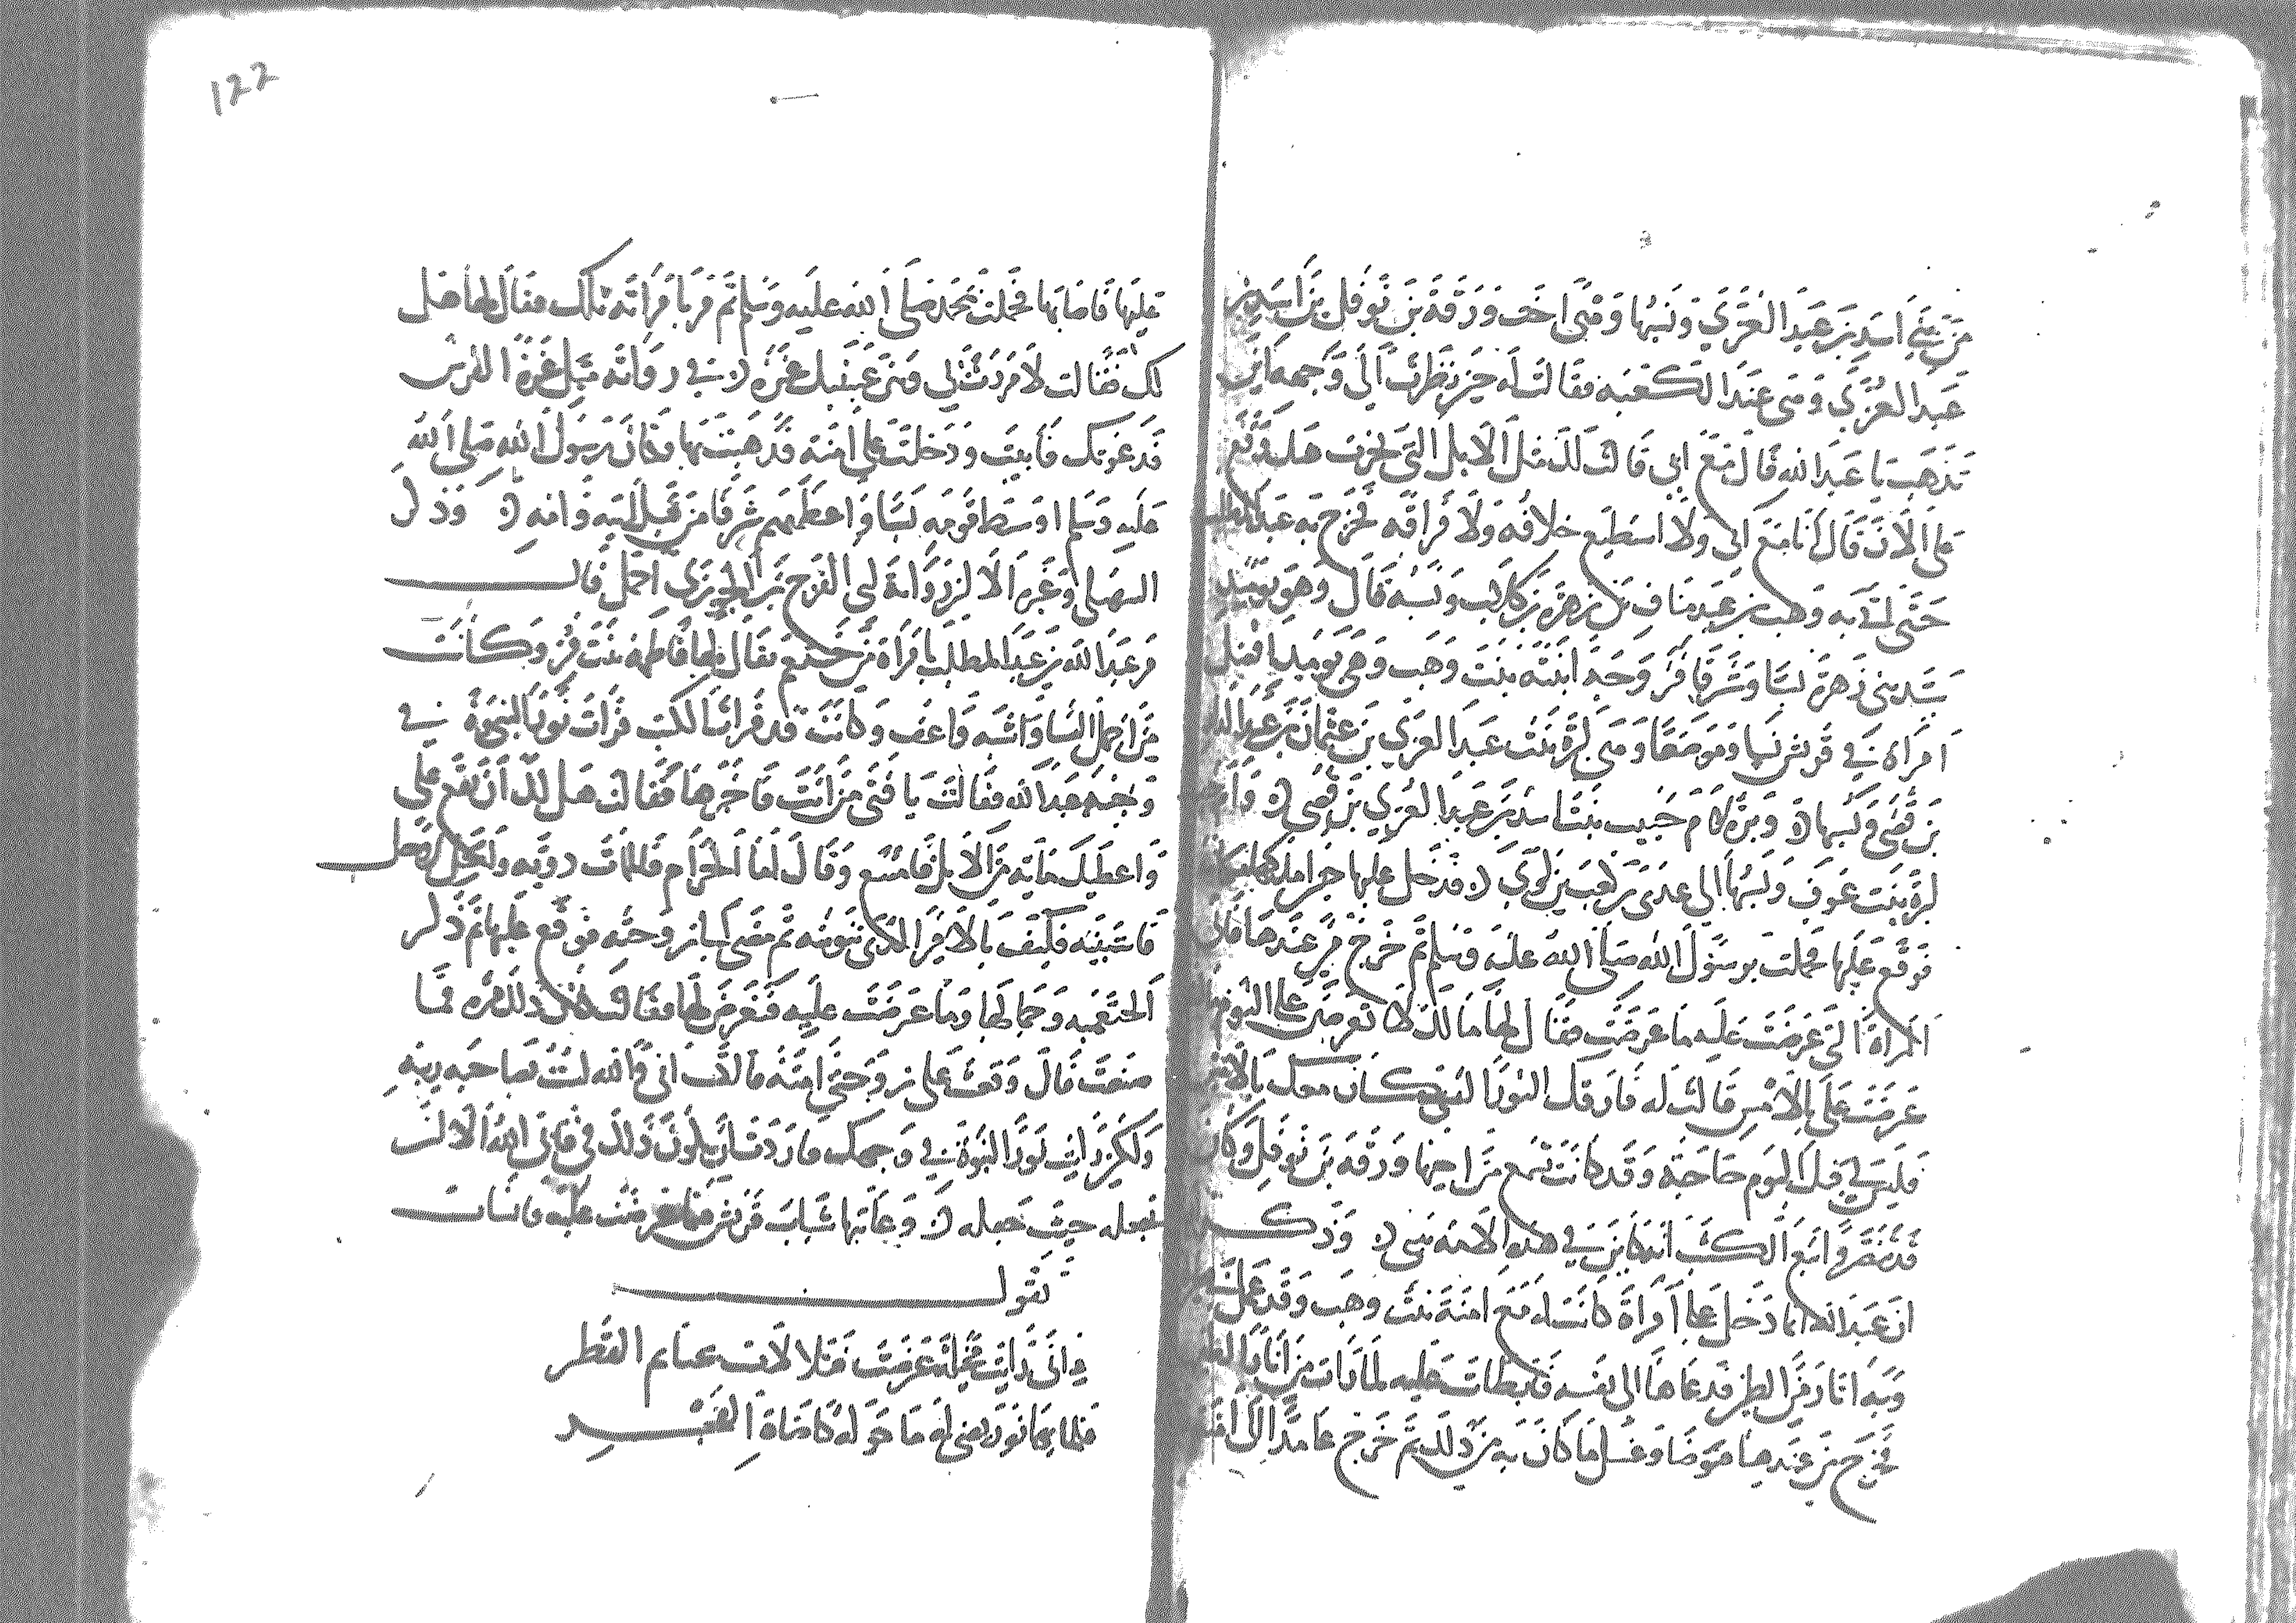 من بني اسد بن عبد العزي ونسبها وهي اخت ورقة بن نوفل بن اسد بن
عبد العزي وهي عند الكعبه فقالت له حين نظرت الى وجهه اين
تذهب يا عبد الله قال مع ابي قالت لك مثل الابل التي نحرت هل وقع
على الان قال انا مع ابي ولا استطيع خلافه ولا فراقه فخرج به عبد المطلب
حتى اتى به وهب بن عبد مناف بن زهره بن كلاب ونسبه قال وهو يوميذ
سيد بني زهرة نسبا وشرفا فزوجه ابنته بنت وهب وهي يوميذ افضل
امراه في قريش نسبا وموضعا وهي لبرة بنت عبد العزي بن عثمان بن عبد الدار
بن قصي ونسبها وبرة لام حبيب بنت اسد بن عبد العزي بن قصي وام حبيب
لبرة بنت عوف ونسبها الى عدى بن كعب بن لوي فدخل عليها حين املكها مكانه
فوقع عليها فحملت برسول الله صلى الله عليه وسلم ثم خرج من عندها فاتى
المراة التي عرضت عليه ما عرضت فقال لها ما لك لا تعرضين علي اليوم ما
عرضت علي بالامس قالت له فارقك النور الذي كان معك بالامس
فليس لي بك اليوم حاجة وقد كانت تسمع من اخيها ورقه بن نوفل وكان
قد تنصر واتبع الكتب انه كاين في هذه الامه نبي وذكر
ان عبد الله انما دخل على امراة كانت له مع امنة بنت وهب وقد عمل في
وبه اثار من الطين فدعاها الى نفسه فابطات عليه لما رات من اثار الطين
فخرج من عندها فتوضا وغسل ما كان به من ذلك ثم خرج عامدا الى امنة
122
عليها فاصابها فحملت بمحمد صلى الله عليه وسلم ثم مر بامراته تلك فقال لها هل
لك فقالت لا مررت بي وبين عينيك غره في رواته مثل غرة الفرس
فدعوتك فابيت ودخلت على امنة فذهبت بها وكان رسول الله صلى الله
عليه وسلم اوسط قومه نسبا واعظمهم شرفا من قبل ابيه وامه وذكر
السهيلي وغيره الا لن رواية لبي الفرج بن الجوزي اجمل قال
مر عبد الله بن عبد المطلب بامراة من خثعم يقال لها فاطمه بنت مر وكانت
من اجمل النسا واشبه واعف وكانت قد قرات الكتب فرات نور النبوة في
وجه عبد الله فقالت يا فتى من انت فاخبرها فقالت هل لك ان تقع علي
واعطيك مايه من الابل فامتنع وقال اما الحرام فالممات دونه والحل لا حل
فاستبينه فكيف بالامر الذي تنوينه ثم مضى الى زوجته فوقع عليها ثم ذكر
الخثعميه وجمالها وما عرضت عليه فعرض لها فقالت قد كان ذلك مره فما
صنعت قال وقعت على زوجتي امنة قالت اني والله لست بصاحبه ريبه
ولكني رايت نور النبوة في وجهك فاردت ان يكون ذلك في فابى الله الا ان
يجعله حيث جعله وعاتبها شباب قريش فيما عرضت عليه فانشات
تقول
اني رايت مخيلة عرضت فتلالات حناتم القطر
فلمابها نور يضي له ما حوله كاضاة الفجر